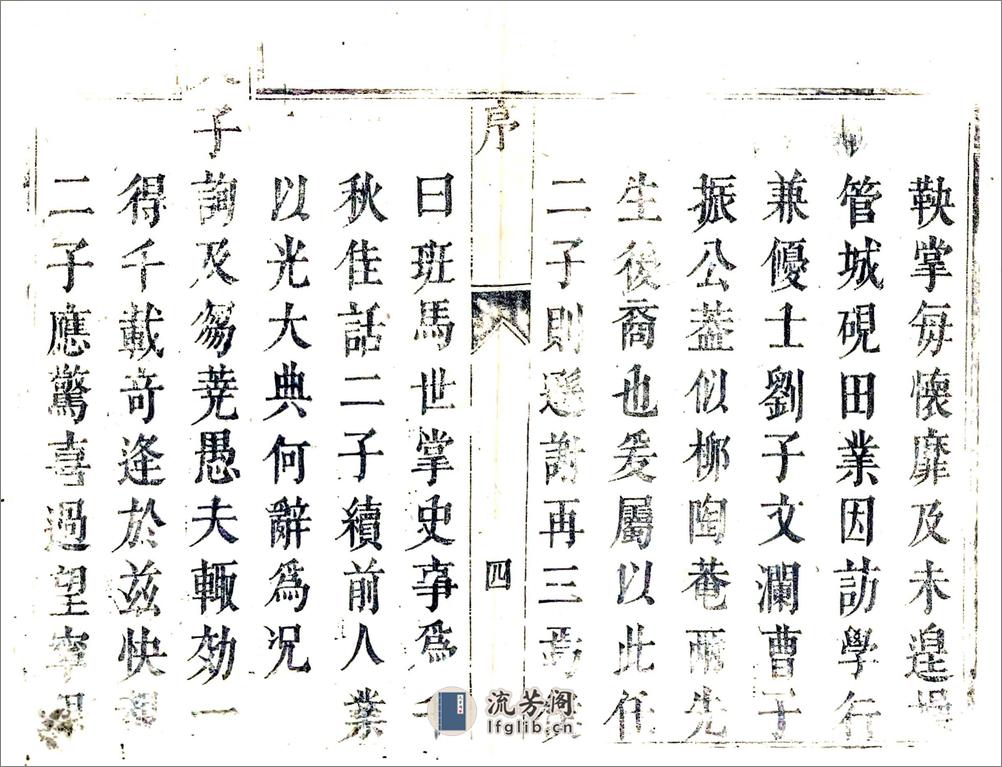 鞅掌每懷靡及未遑
管城硯田業因訪學行
兼優士劉子文瀾曹子
振公葢似柳陶菴兩先
生後裔也爰屬以此任
二子則遜謝再三焉
序
四
曰班馬世掌史事爲千
秋佳話二子續前人業
以光大典何辭爲況
子詢及芻蕘愚夫輙効一
得千載奇逢於兹快
二子應驚喜過望寧
流芳阁
lfglib.cn